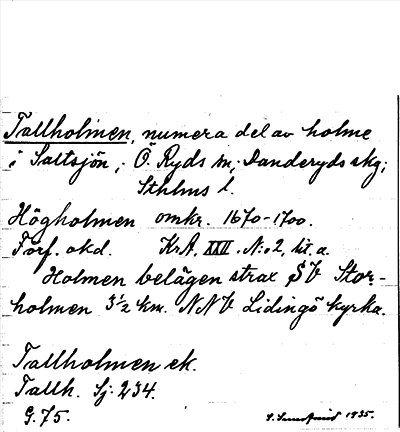 Tallholmen, numera del av holme
i Saltsjön; Ö. Ryds sn; Danderyds skg;
Sthlms l.
Högholmen omkr. 1670-1700.
Förf. okd. KrA, XXII. N:o 2, lit. a.
Holmen belägen strax SV Stor-
holmen 3½ km. NNV Lidingö kyrka.
Tallholmen ek.
Tallh. Sj: 234.
G. 75.
1935.